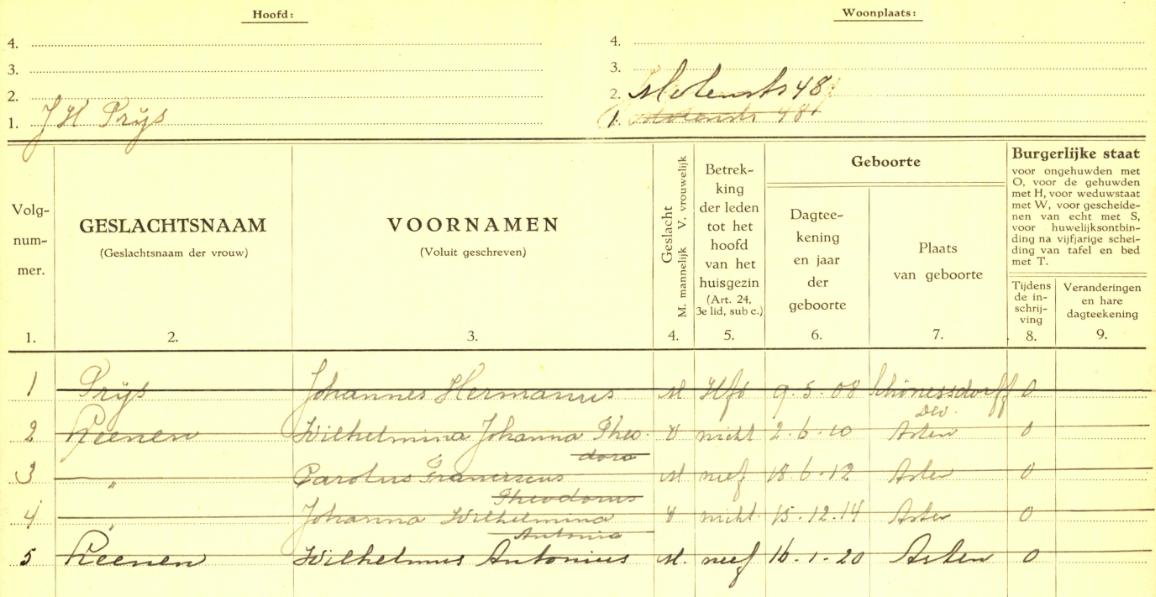 Hoofd:
Woonplaats:
4.
4.
3.
3.
2.
2. Molenstr 48
1. J H Prijs
1. Molenstr 48
Volg-
num-
mer.
1.
GESLACHTSNAAM
(Geslachtsnaam der vrouw)
2.
VOORNAMEN
(Voluit geschreven)
3.
Geslacht
M. mannelijk V. vrouwelijk
4.
Betrek-
king
der leden
tot het
hoofd
van het
huisgezin
(Art. 24,
3e lid, sub c.)
5.
Geboorte
Dagtee-
kening
en jaar
der
geboorte
6.
Plaats
van geboorte
7.
Burgerlijke staat
voor ongehuwden met
O, voor de gehuwden
met H, voor weduwstaat
met W, voor gescheide-
nen van echt met S,
voor huwelijksontbin-
ding na vijfjarige schei-
ding van tafel en bed
met T.
Tijdens
de in-
schrij-
ving
8.
Veranderingen
en hare
dagteekening
9.
1 Prijs Johannes Hermanus M Hfd 9.5.08 O
2 Keenen Wilhelmina Johanna Theo- V nicht 2.6.10 Asten O
dora
3 " Carolus Franciscus M neef 18.6.12 Asten O
Theodorus
4 " Johanna Wilhelmina V nicht 15.12.14 Asten O
Antonia
5 Keenen Wilhelmus Antonius M. neef 16.1.20 Asten O